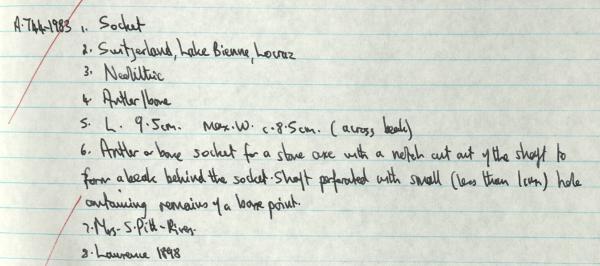 A.744-1983 1. Socket
2. Switzerland, Lake Bienne, Locraz
3. Neolithic
4. Antler/bone
5. L. 9.5cm. Max.W. c.8.5cm. (across beak)
6. Antler or bone socket for a stone axe with a notch cut out of the shaft to
form a beak behind the socket. Shaft perforated with small (less than 1cm) hole
containing remains of a bone point.
7. Mus. S. Pitt-Rivers.
8. Lawrence 1898